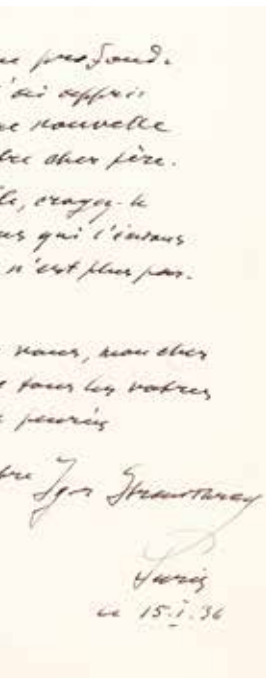 profond.
'ai appris
nouvelle
tre cher père.
le, croyez-le
us qui l'
n'est plus
vous, mon cher
tous les vôtres
tre Igor Strawinsky
Paris
le 15.I.36